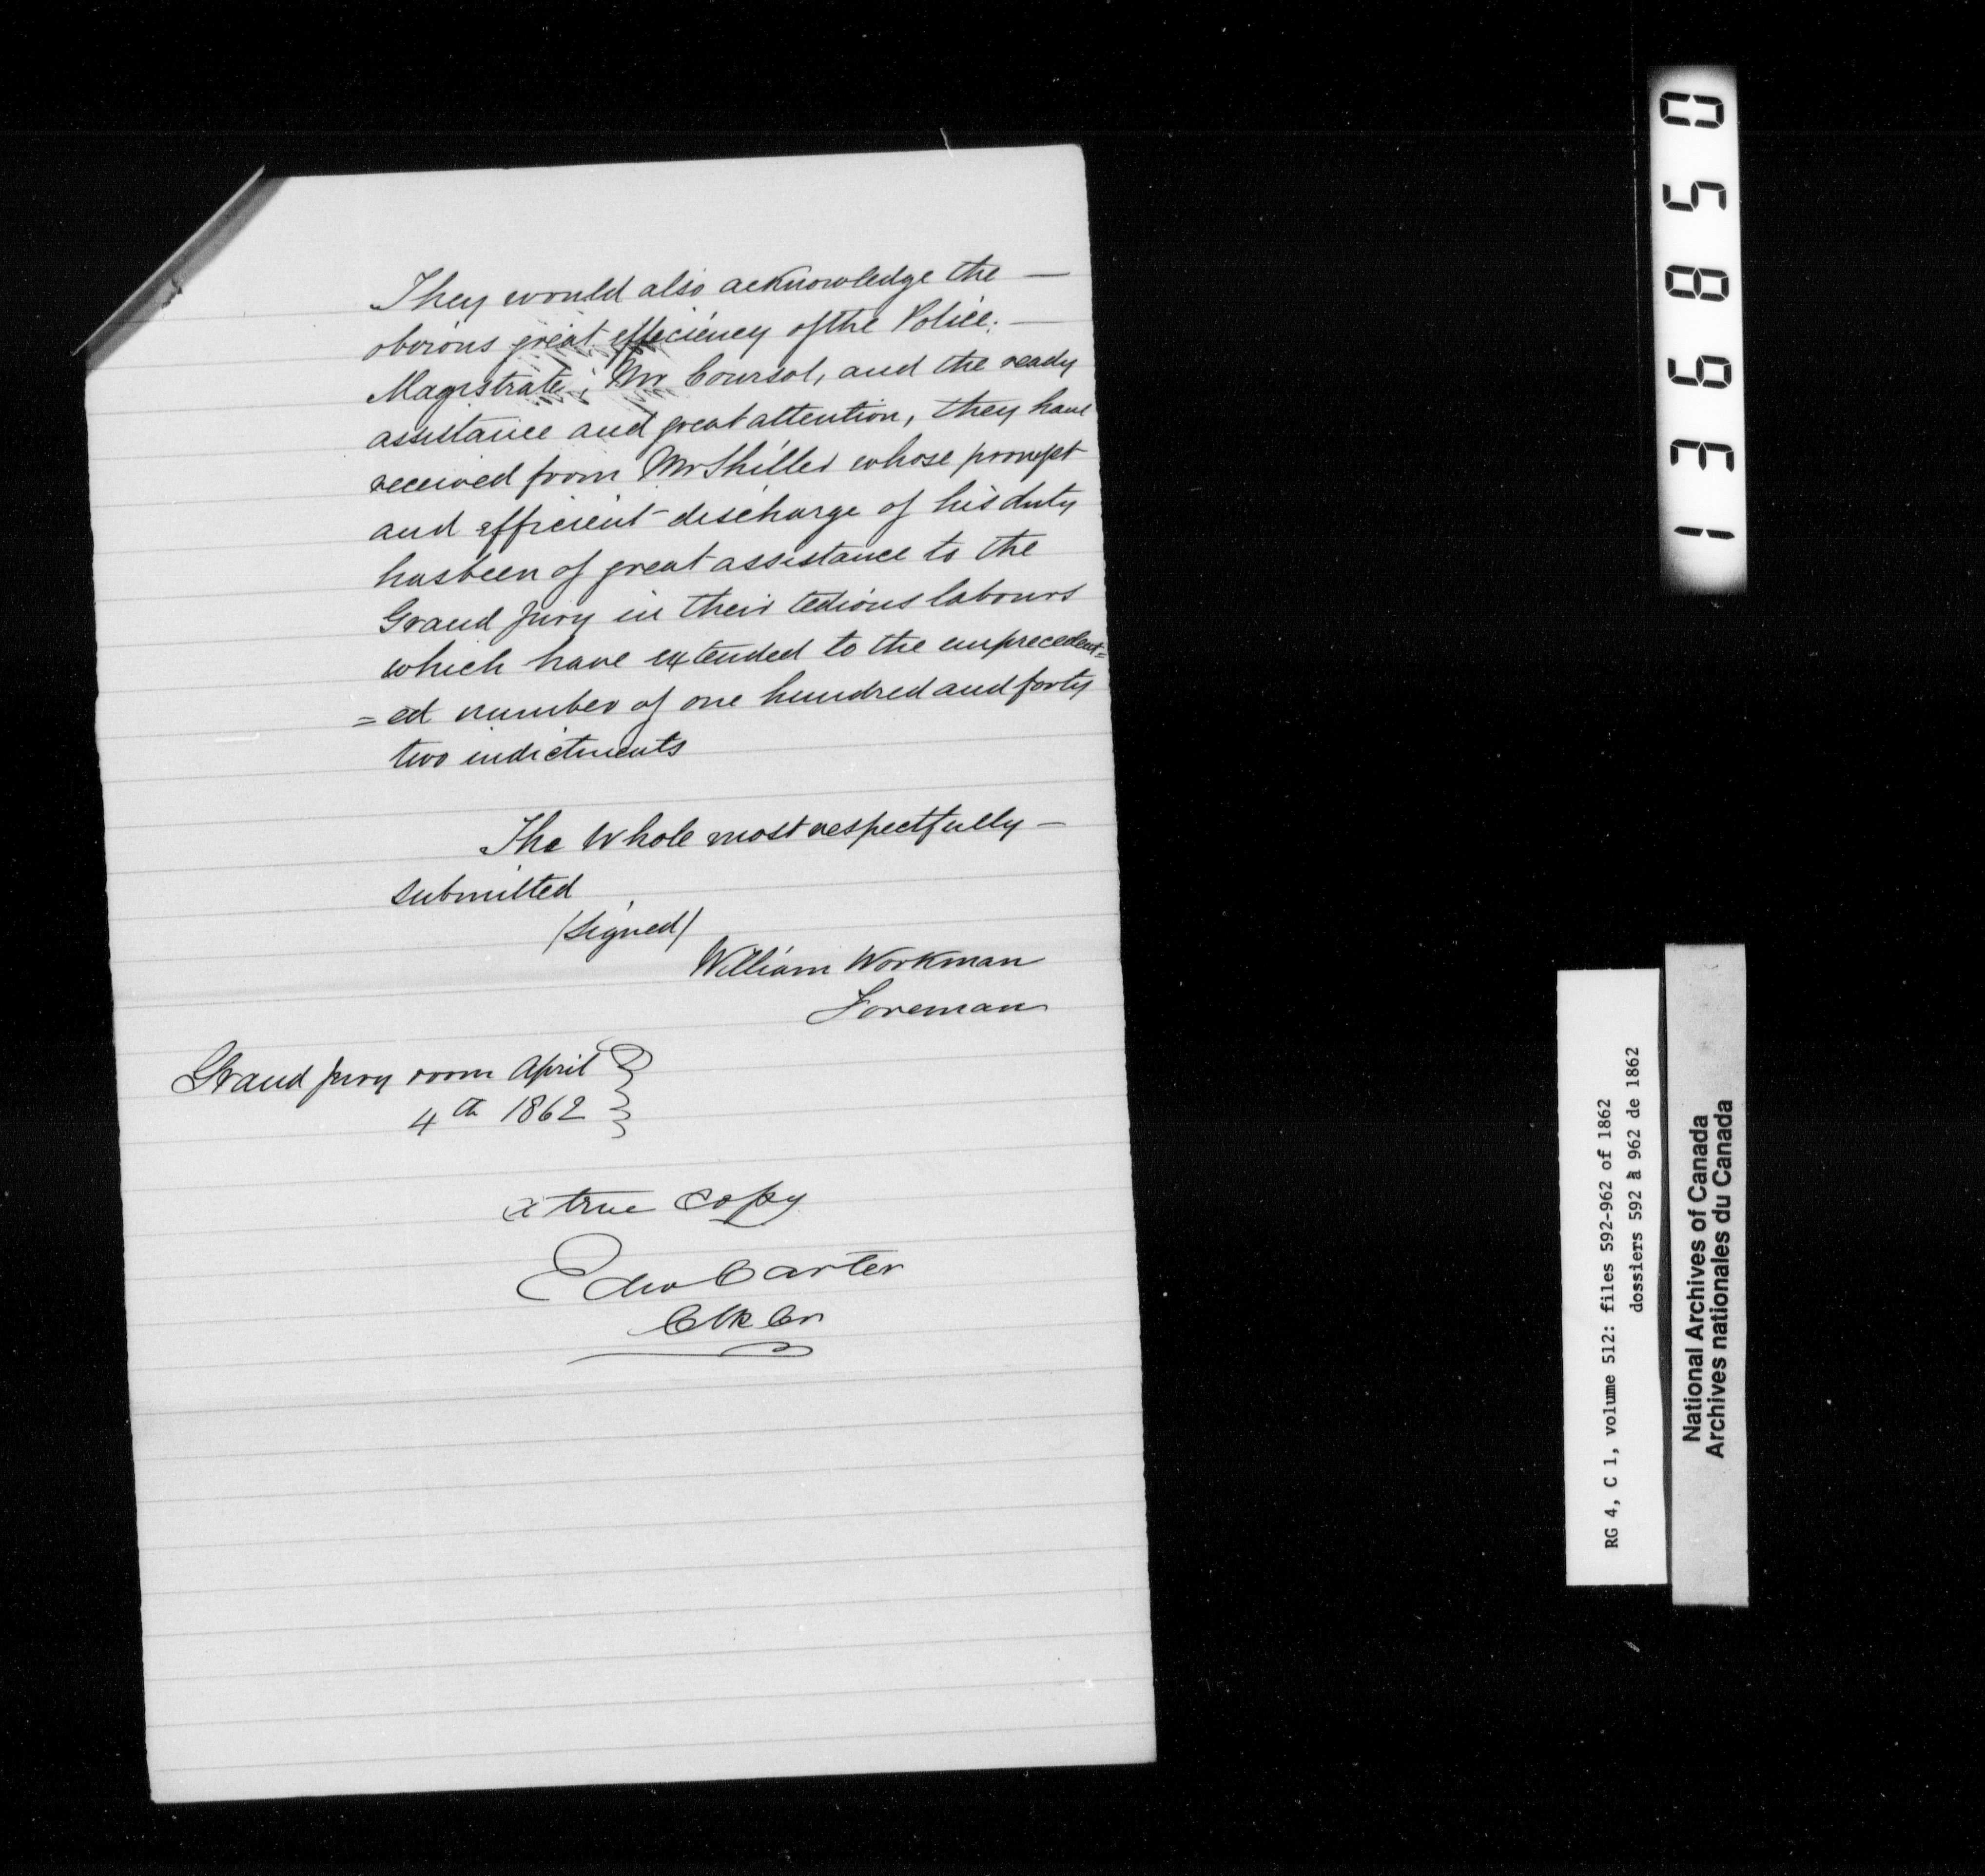 They would also acknowledge the —
obvious great efficiency of the Police. —
Magistrate, Mr Coursol, and the ready
assistance and great attention, they have
received from Mr Shiller whose prompt
and efficient discharge of his duty
has been of great assistance to the
Grand Jury in their tedious labours
which have extended to the unprecedent=
=ed number of one hundred and forty
two indictments
The Whole most respectfully —
submitted
/signed/
William Workman
Foreman
Grand Jury room April
4th 1862
a true copy
Edw Carter
Clk Cr
136850
RG 4, C 1, volume 512: files 592-962 of 1862
dossiers 592 à 962 de 1862
National Archives of Canada
Archives nationales du Canada